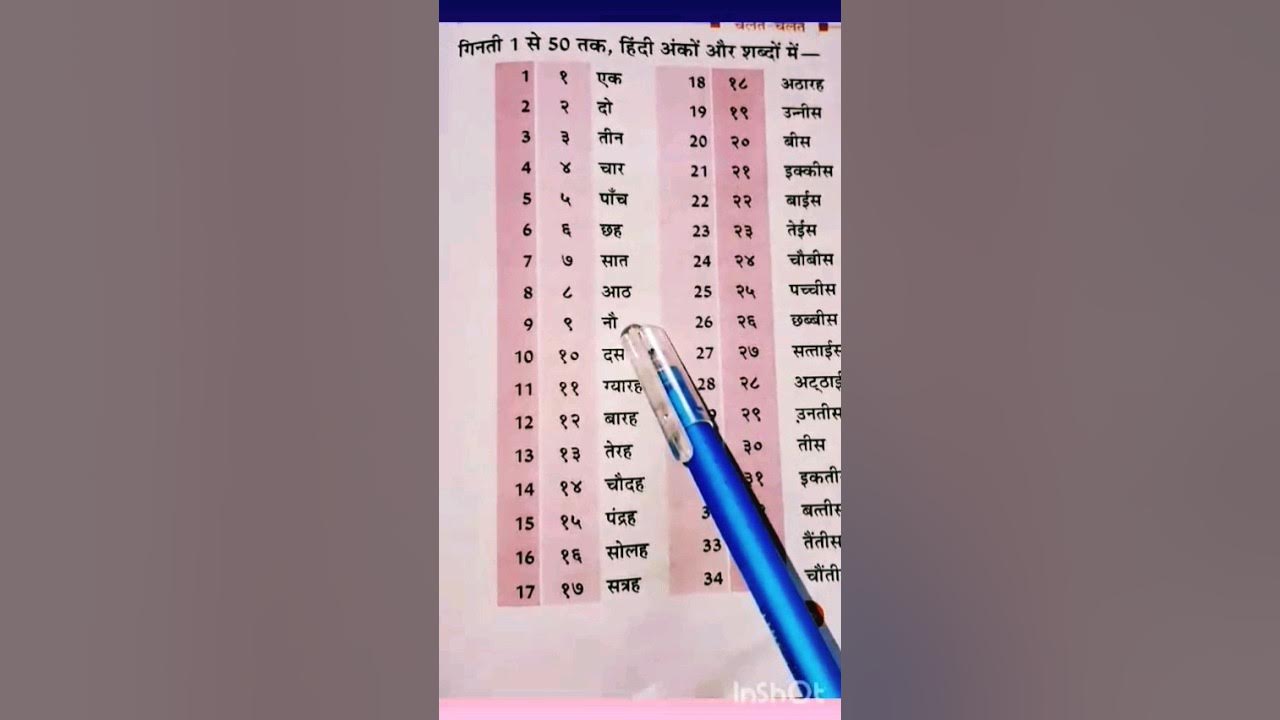 चलते-चलते
गिनती 1 से 50 तक, हिंदी अंकों और शब्दों में—
1 १ एक
2 २ दो
3 ३ तीन
4 ४ चार
5 ५ पाँच
6 ६ छह
7 ७ सात
8 ८ आठ
9 ९ नौ
10 १० दस
11 ११ ग्यारह
12 १२ बारह
13 १३ तेरह
14 १४ चौदह
15 १५ पंद्रह
16 १६ सोलह
17 १७ सत्रह
18 १८ अठारह
19 १९ उन्नीस
20 २० बीस
21 २१ इक्कीस
22 २२ बाईस
23 २३ तेईस
24 २४ चौबीस
25 २५ पच्चीस
26 २६ छब्बीस
27 २७ सत्ताईस
28 २८ अट्ठाई
२९ उनतीस
३० तीस
३१ इकती
बत्तीस
33 तैंतीस
34 चौंती
InShOt